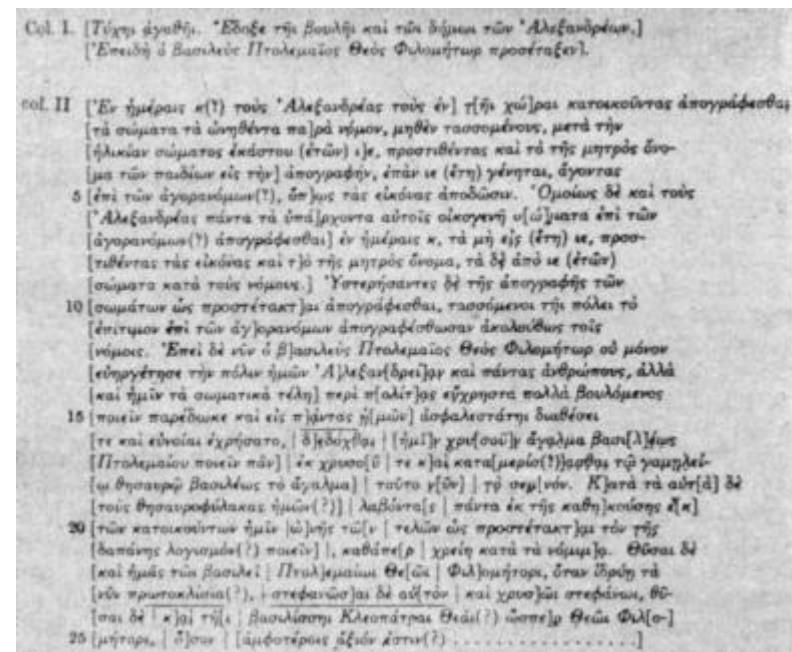 Col. I. [Τύχηι ἀγαθῆι. Ἔδοξε τῆι βουλῆι καὶ τῶι δήμωι τῶν Ἀλεξανδρέων,]
[Ἐπειδὴ ὁ βασιλεὺς Πτολεμαῖος Θεὸς Φιλομήτωρ προσέταξεν].
col. II [Ἐν ἡμέραις κ(?) τοὺς Ἀλεξανδρέας τοὺς ἐν] τ[ῆι χώ]ραι κατοικοῦντας ἀπογράφεσθαι
[τὰ σώματα τὰ ὠνηθέντα πα]ρὰ νόμον, μηθὲν τασσομένους, μετὰ τὴν
[ἡλικίαν σώματος ἑκάστου (ἐτῶν) ι]ε, προστιθέντας καὶ τὸ τῆς μητρὸς ὄνο-
[μα τῶν παιδίων εἰς τὴν] ἀπογραφήν, ἐπὰν ιε (ἔτη) γένηται, ἄγοντας
5 [ἐπὶ τῶν ἀγορανόμων(?), ὅπ]ως τὰς εἰκόνας ἀποδῶσιν. Ὁμοίως δὲ καὶ τοὺς
[Ἀλεξανδρέας πάντα τὰ ὑπά]ρχοντα αὐτοῖς οἰκογενῆ σ[ώ]ματα ἐπὶ τῶν
[ἀγορανόμων(?) ἀπογράφεσθαι] ἐν ἡμέραις κ, τὰ μὴ εἰς (ἔτη) ιε, προσ-
[τιθέντας τὰς εἰκόνας καὶ τ]ὸ τῆς μητρὸς ὄνομα, τὰ δὲ ἀπὸ ιε (ἐτῶν)
[σώματα κατὰ τοὺς νόμους.] Ὑστερήσαντες δὲ τῆς ἀπογραφῆς τῶν
10 [σωμάτων ὡς προστέτακτ]αι ἀπογράφεσθαι, τασσόμενοι τῆι πόλει τὸ
[ἐπίτιμον ἐπὶ τῶν ἀγ]ορανόμων ἀπογραφέσθωσαν ἀκολούθως τοῖς
[νόμοις. Ἐπεὶ δὲ νῦν ὁ β]ασιλεὺς Πτολεμαῖος Θεὸς Φιλομήτωρ οὐ μόνον
[εὐηργέτησε τὴν πόλιν ἡμῶν Ἀ]λεξαν[δρει]αν καὶ πάντας ἀνθρώπους, ἀλλὰ
[καὶ ἡμῖν τὰ σωματικὰ τέλη] περὶ π[ολίτ]ας εὔχρηστα πολλὰ βουλόμενος
15 [ποιεῖν παρέδωκε καὶ εἰς π]άντας ἡ[μῶν] ἀσφαλεστάτηι διαθέσει
[τε καὶ εὐνοίαι ἐχρήσατο, | δ]εδόχθαι | [ἡμῖ]ν χρυ[σοῦ]ν ἄγαλμα βασι[λ]έως
[Πτολεμαίου ποιεῖν πᾶν] | ἐκ χρυσο[ῦ | τε κ]αὶ κατα[μερίσ(?)]ασθαι τῷ γαμηλεί-
[ῳ θησαυρῷ βασιλέως τὸ ἄγαλμα] | τοῦτο ν[ῦν] | τὸ σεμ[νόν. Κ]ατὰ τὰ αὐτ[ὰ] δὲ
[τοὺς θησαυροφύλακας ἡμῶν(?)] | λαβόντα[ς | πάντα ἐκ τῆς καθη]κούσης ἐ[κ]
20 [τῶν κατοικούντων ἡμῖν |ὠ]νῆς τῶ[ν | τελῶν ὡς προστέτακτ]αι τὸν τῆς
[δαπάνης λογισμόν(?) ποιεῖν] |, καθάπε[ρ | χρείη κατὰ τὰ νόμιμ]α. Θῦσαι δὲ
[καὶ ἡμᾶς τῶι βασιλεῖ | Πτολ]εμαίωι Θε[ῶι | Φιλ]ομήτορι, ὅταν ἱδρύῃ τὰ
[νῦν πρωτοκλίσια(?), | στεφανῶσ]αι δὲ αὐ[τὸν | καὶ χρυσ]ῶι στεφάνωι, θῦ-
[σαι δὲ | κ]αὶ τῆ[ι | βασιλίσσηι Κλεοπάτραι Θεᾶι(?) ὥσπε]ρ Θεῶι Φιλ[ο-]
25 [μήτορι, | ὅ]σων | [ἀμφοτέροις ἄξιόν ἐστιν(?) ..................]